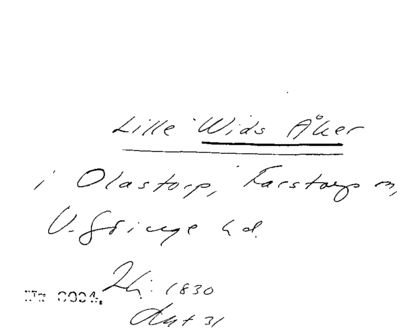 Lille Wids Åker
i Olastorp, Farstorp sn,
V. Göinge hd.
Hi: 1830
Akt 31